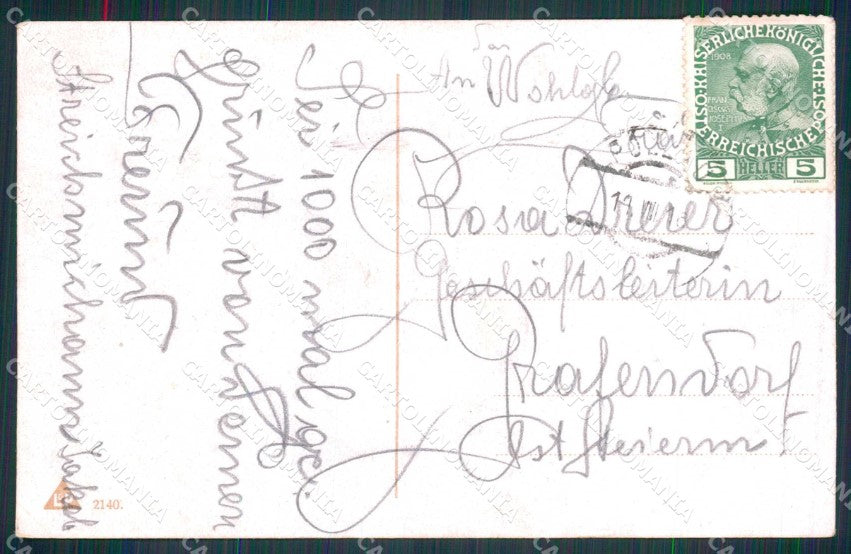 Sei 1000 mal ge-
grüßt von deinem
Freund
An Wohlgeb
Rosa Dreier
Geschäftsleiterin
Grafendorf
Ost Steierm
KAISERLICHE KÖNIGLICHE
ÖSTERREICHISCHE
1908
FRANZ
JOSEPH I
5 HELLER 5
2140.
CARTOLINOMANIA